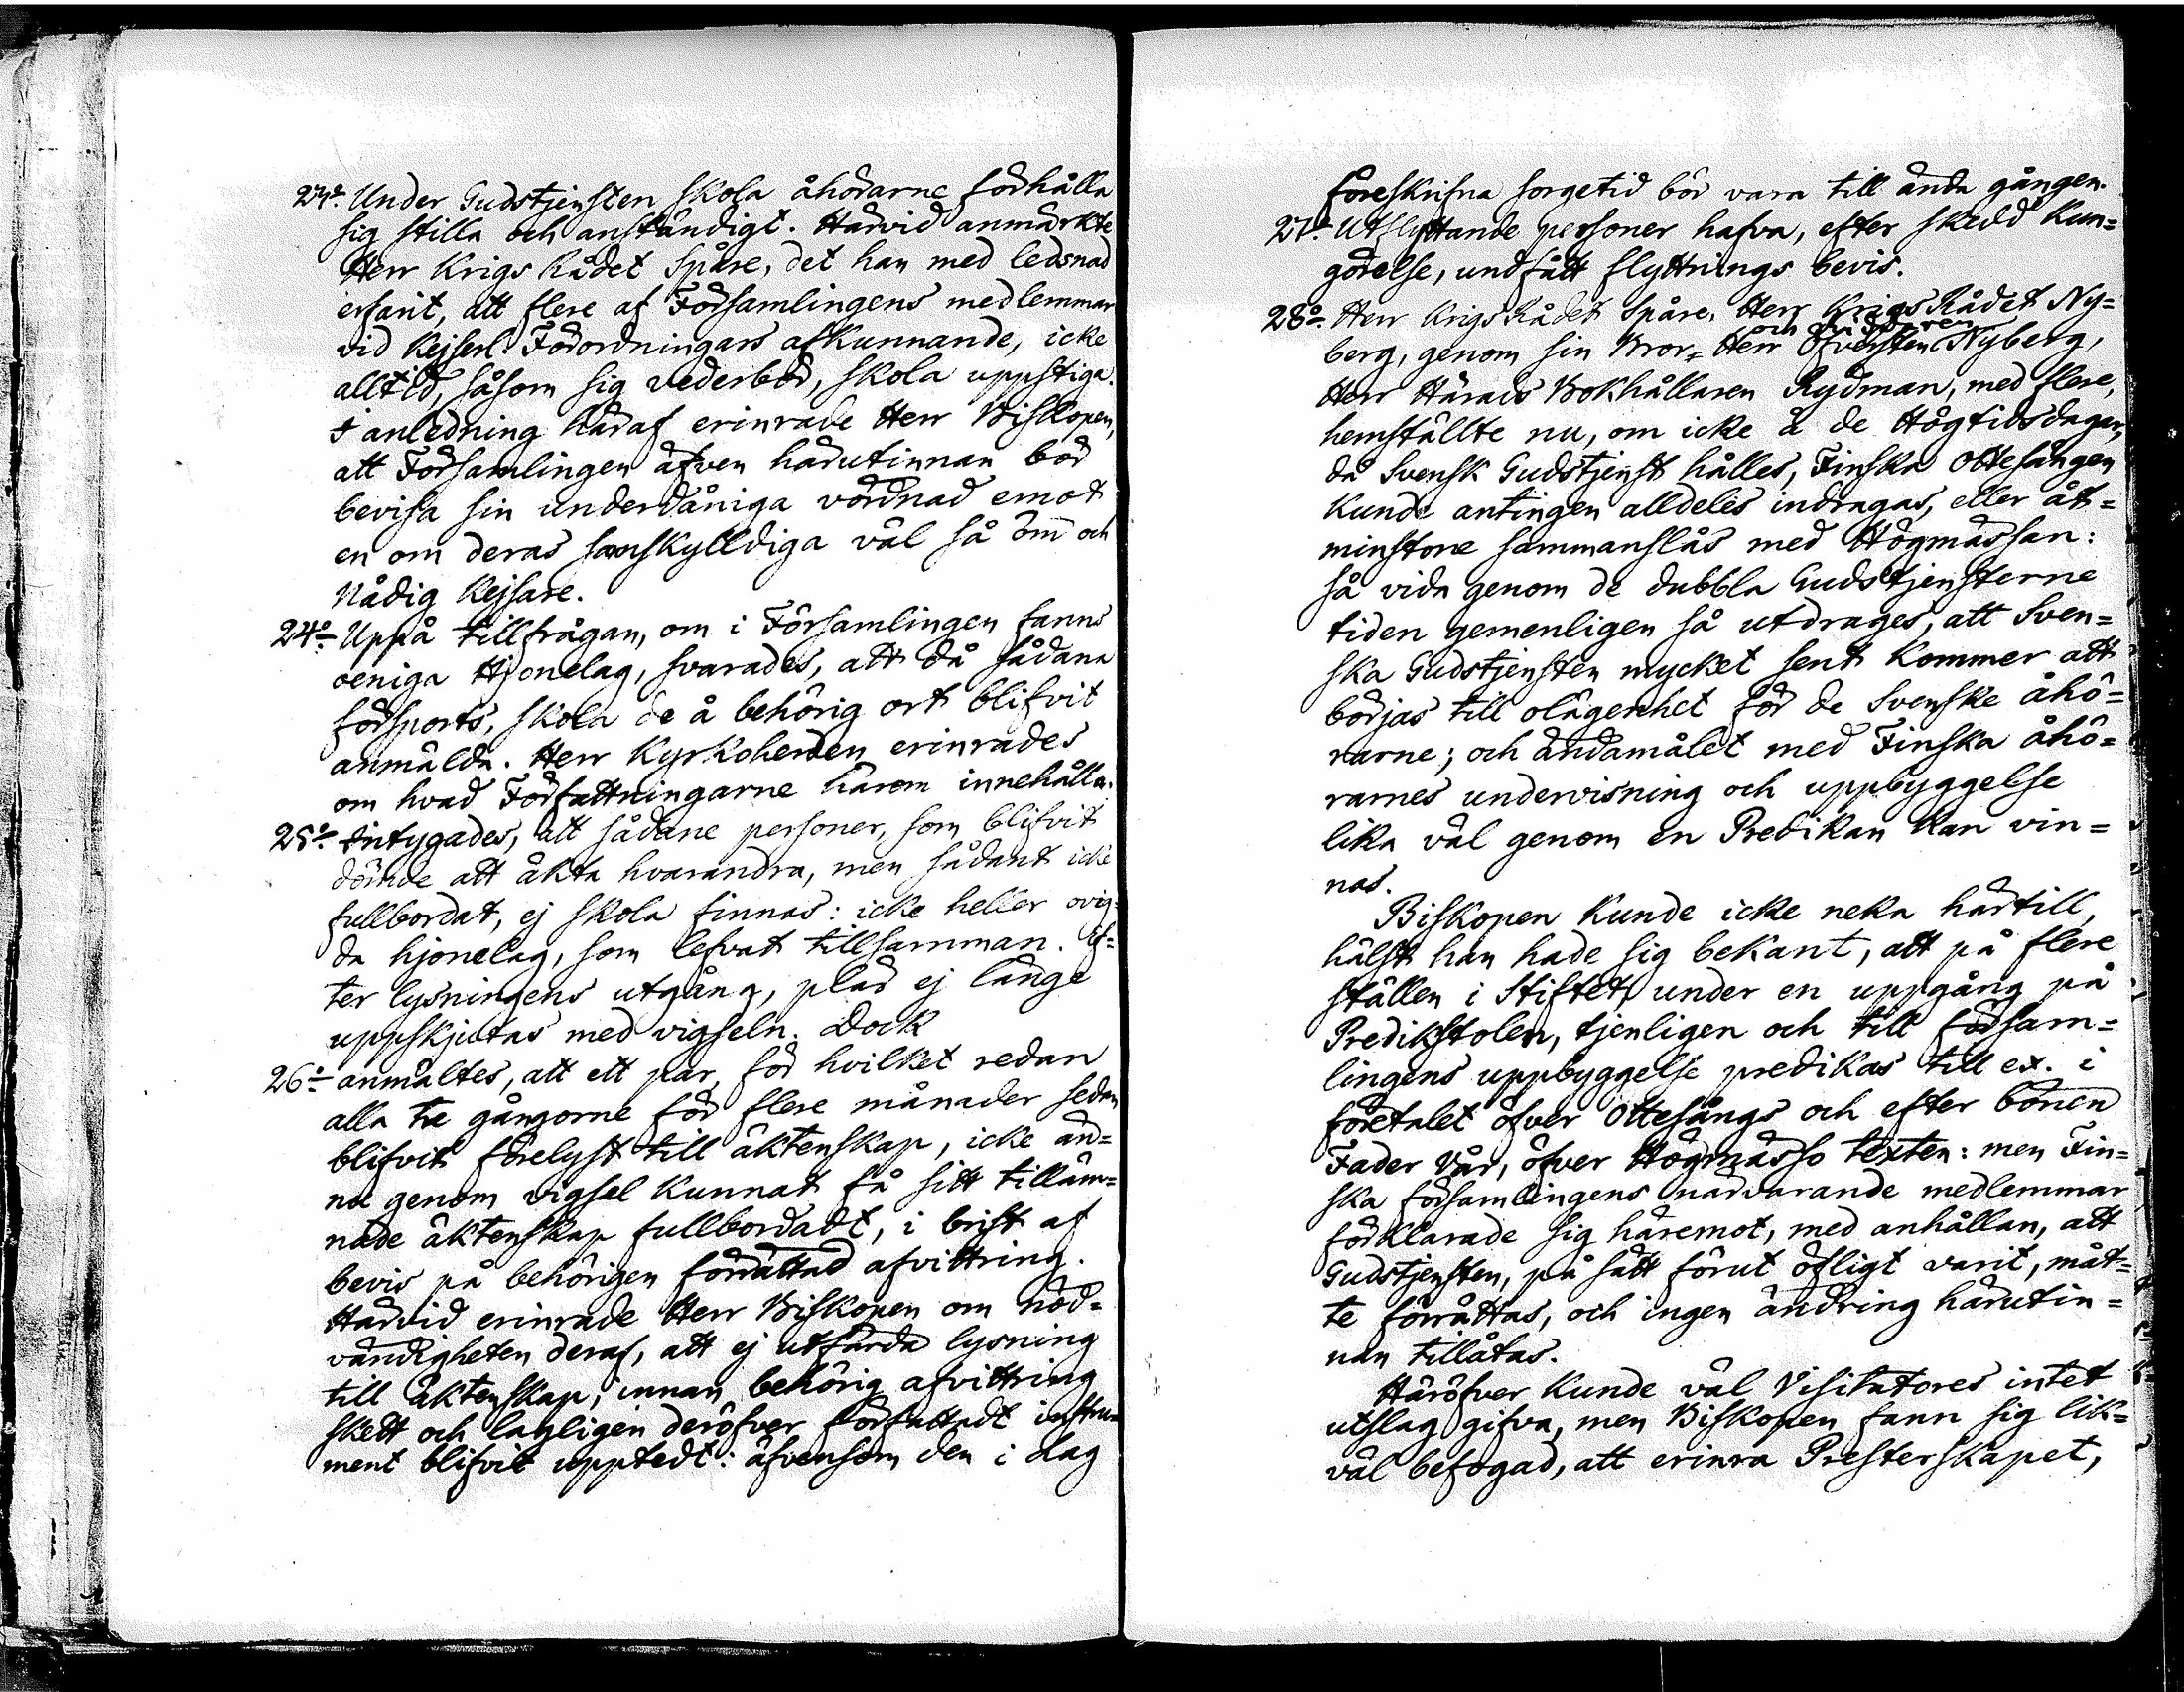 23º Under Gudstjensten skola åhörarne förhålla
sig stilla och anständigt. Härvid anmärkte
Herr Krigs Rådet Spåre, det han med ledsnad
erfarit, att flere af Församlingens medlemmar
vid Kejserl. Förordningars afkunnande, icke
alltid, såsom sig vederbör, skola uppstiga.
I anledning häraf erinrade Herr Biskopen,
att Församlingen äfven härutinnan bör
bevisa sin underdåniga vördnad emot
en om deras sannskylldiga väl så öm och
Nådig Kejsare.
24º Uppå tillfrågan, om i Församlingen fanns
oeniga Hjonelag, svarades, att då sådana
försports, skola de å behörig ort blifvit
anmälda. Herr Kyrkoherden erinrades
om hvad Författningarne härom innehålla.
25º Intygades, att sådane personer, som blifvit
dömde att äkta hvarandra, men sådant icke
fullbordat, ej skola finnas: icke heller ovig-
da hjonelag, som lefvat tillsamman. Ef=
ter lysningens utgång, plär ej länge
uppskjutas med vigseln. Dock
26º anmältes, att ett par, för hvilket redan
alla tre gångorne för flere månader sedan
blifvit förelyst till äktenskap, icke än=
nu genom vigsel kunnat få sitt tilläm=
nade äktenskap fullbordadt, i brist af
bevis på behörigen förrättad afvittring.
Härvid erinrade Herr Biskopen om nöd=
vändigheten deraf, att ej utfärda lysning
till äktenskap, innan behörig afvittring
skett och lagligen deröfver författadt instru=
ment blifvit upptedt: äfvensom den i lag
föreskrifna sorgetid bör vara till ända gången.
27º Utflyttande personer hafva, efter skedd kun=
görelse, undfått flyttnings bevis.
28º Herr Krigs Rådet Spåre, Herr Krigs Rådet Ny=
berg, genom sin Bror, Herr Öfversten Nyberg,
Herr Härads Bokhållaren Rydman, med flere,
hemställte nu, om icke å de Högtidsdagar,
då Svensk Gudstjenst hålles, Finska Ottesången
kunde antingen alldeles indragas, eller åt=
minstone sammanslås med Högmässan:
så vida genom de dubbla Gudstjensterne
tiden gemenligen så utdrages, att Sven=
ska Gudstjensten mycket sent kommer att
börjas till olägenhet för de Svenske åhö=
rarne; och ändamålet med Finska åhö=
rarnes undervisning och uppbyggelse
lika väl genom en Predikan kan vin=
nas.
Biskopen kunde icke neka härtill,
hälst han hade sig bekant, att på flere
ställen i Stiftet, under en uppgång på
Predikstolen, tjenligen och till försam=
lingens uppbyggelse predikas till ex. i
företalet öfver Ottesångs och efter bönen
Fader Vår, öfver Högmässo texten: men Fin=
ska församlingens närvarande medlemmar
förklarade sig häremot, med anhållan, att
Gudstjensten, på sätt förut öfligt varit, måt=
te förrättas, och ingen ändring härutin=
nan tillåtas.
Häröfver kunde väl Visitatores intet
utslag gifva, men Biskopen fann sig lik=
väl befogad, att erinra Presterskapet,